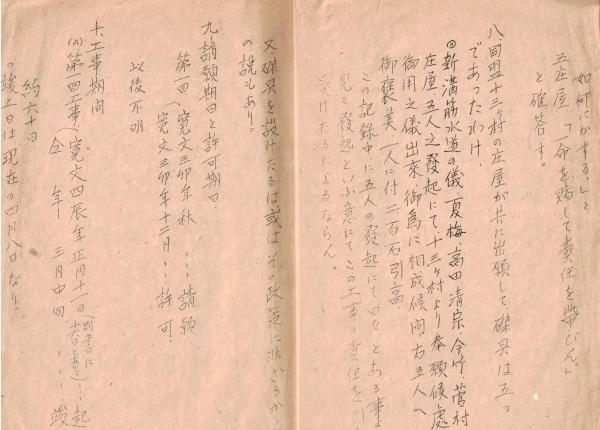 如何にかする。」と
五庄屋「一命を賭して責任を帯びん。」
と確答す。
八、同盟十三ヶ村の庄屋が共に出願して磔具は五つ
であったわけ、
◎新溝筋水道の儀、夏梅、高田、清宗、今竹、菅村
庄屋五人之發起にて十三ヶ村より奉願候處
御用之儀出來、御爲に相成候間右五人へ
御褒美一人に付二百石引高
この記錄中に五人の發起にて云々とある事よ
見て發起といふ意にてこの工事の責任を引
受けたるによるならん。
又、磔具を設けたるは或は その政策に非ざるか
の説もあり。
九、請願期日と許可期日、
第一回(寛文三卯年秋 … 請願
寛文三卯年十二月 … 許可、
以後不明
十、工事期間
(A)第一回工事(寛文四辰年正月十一日 … 起
全 年 三月中旬 … 竣
約六十日
◎竣工日は現在の四月八日なり。